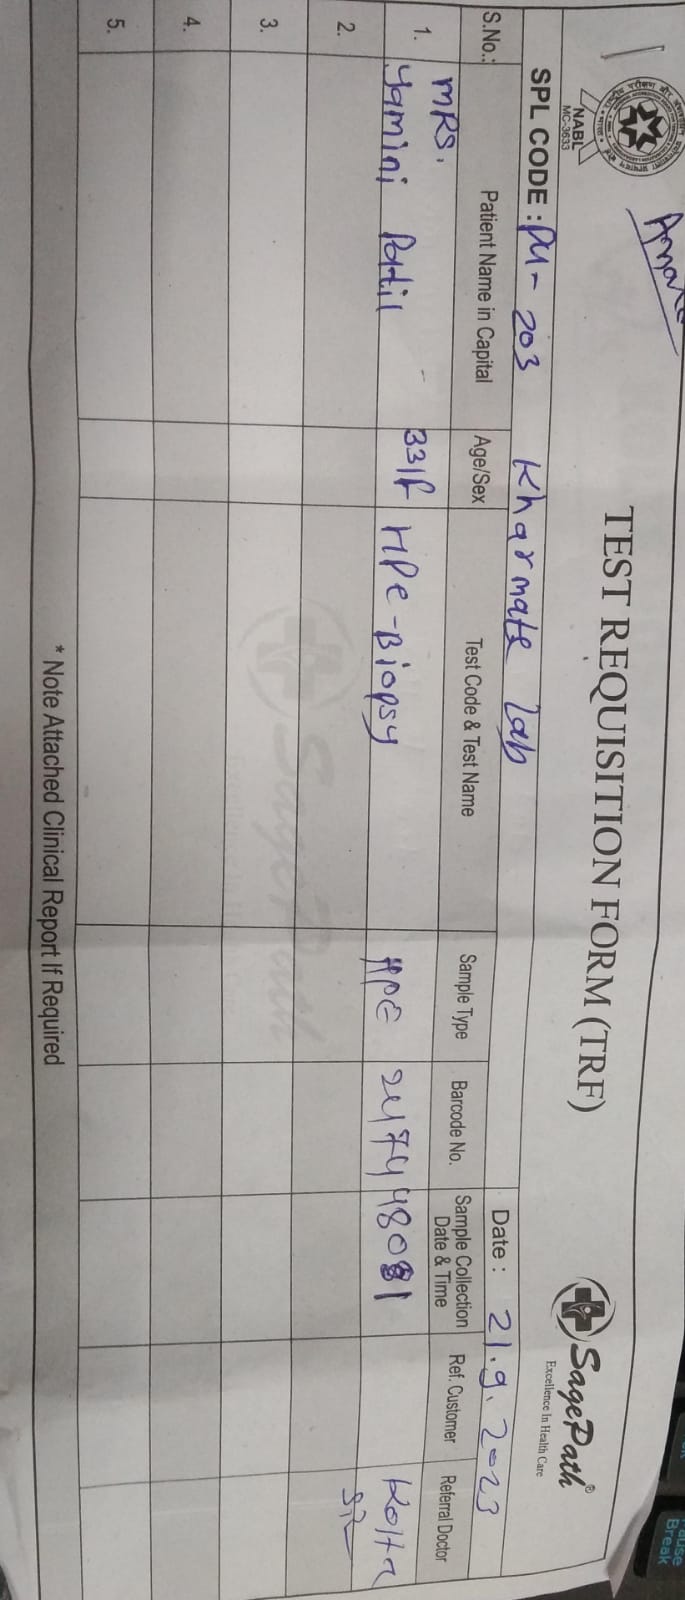 NABL
MC-3633
TEST REQUISITION FORM (TRF)
SagePath®
Excellence In Health Care
SPL CODE : PU- 203 Kharmate Lab Date : 21.9.2023
S.No.: Patient Name in Capital Age/Sex Test Code & Test Name Sample Type Barcode No. Sample Collection Date & Time Ref. Customer Referral Doctor
MRS.
1. Yamini Patil 33/F HPE-Biopsy HPE
2.
3.
4.
5.
SagePath
* Note Attached Clinical Report If Required
Pause
Break